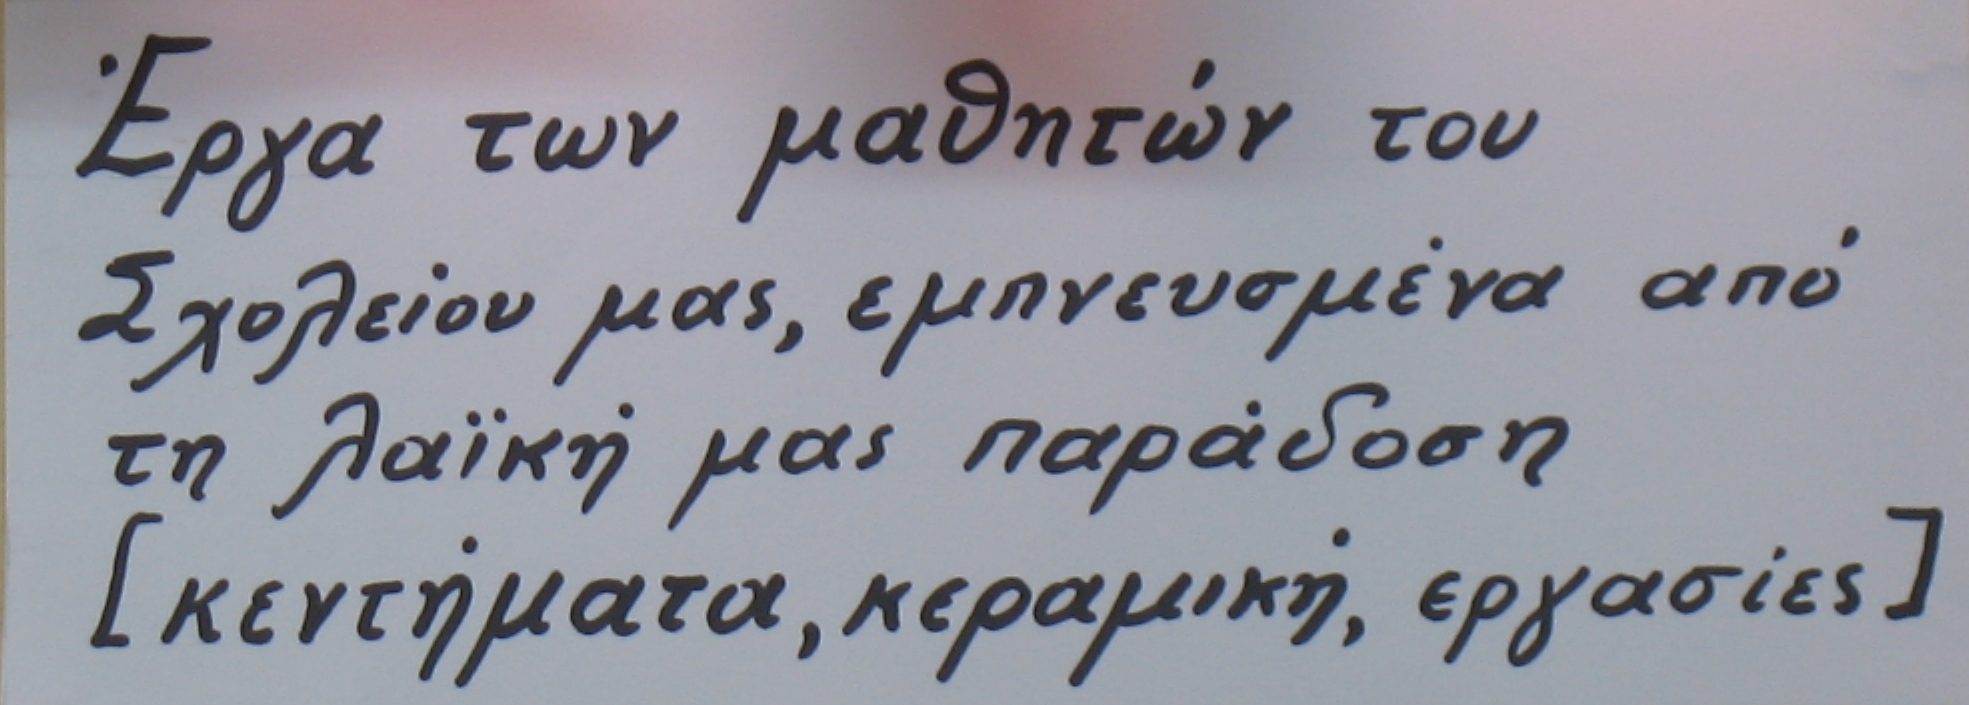 Έργα των μαθητών του
Σχολείου μας, εμπνευσμένα από
τη λαϊκή μας παράδοση
[κεντήματα, κεραμική, εργασίες]